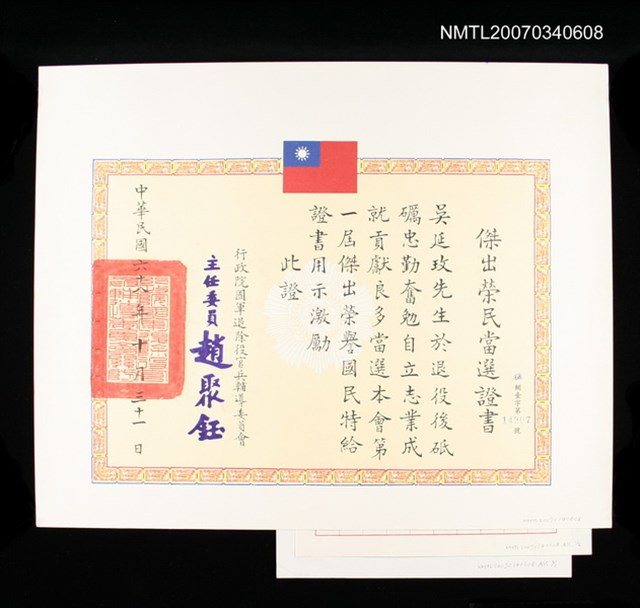 NMTL20070340608
傑出榮民當選證書
吳延玫先生於退役後砥
礪忠勤奮勉自立志業成
就貢獻良多當選本會第
一屆傑出榮譽國民特給
證書用示激勵
此證
行政院國軍退除役官兵輔導委員會
主任委員 趙聚鈺
中華民國六十八年十月三十一日